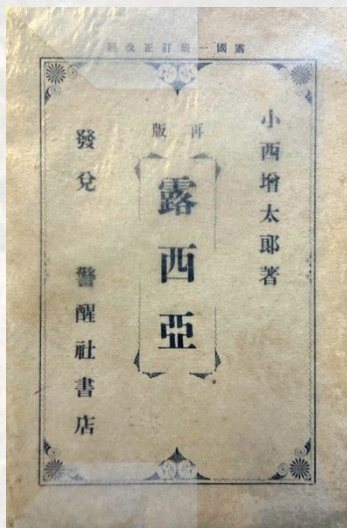 露國一斑訂正改刷
小西增太郎著
再版
露西亞
發兌 警醒社書店